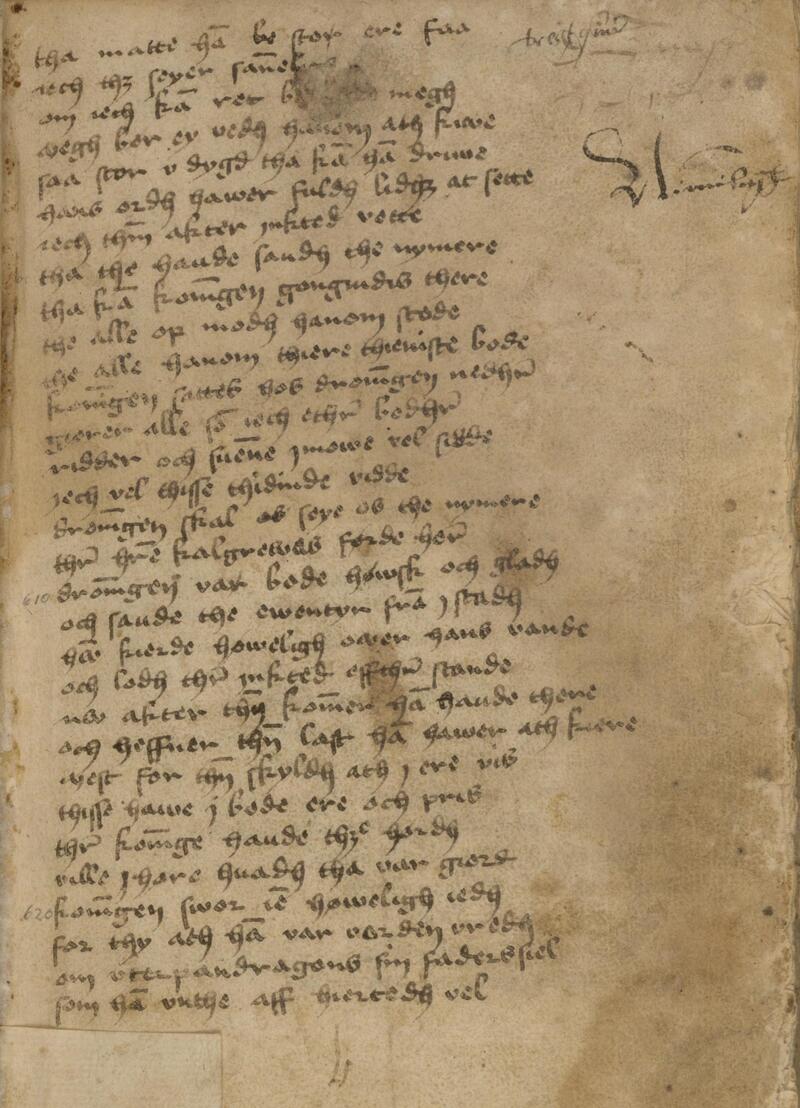 tha matte hā be stor ere faa
iech thz seyer sāne
om iech kā ret megh
megh ber ey vedh hanom ath kiwe
saa stor v dygd tha kā hā driwe
hans ordh hawer fuldh lidz at sette
iech thm̄ after jnkted vette
tha the haude sandh the nymere
tha kā kom̄gen gongindis there
the alle op modh hanom stode
the alle hanom thiere thieniste bode
kom̄gen sattes hos drom̄gen nedhr̄
gierer alle so̅ iech ethr̄ bedhr̄
ridder och suēne j mowe vel sidde
iech vel thisse thidinde vidde
drom̄gen skal os seye os the nymere
thr̄ hr̄e kalgrewas forde her̄
610 drom̄gen var bode høwsk och gladh
och saude the ewentyr frā j stadh
hā kierde howeligh ower hans vande
och lodh thr̄ jnkted effthr̄ stande
nw after thn̄ kom̄er hā haude there
och heffner thn̄ last hā hawer ath kiere
mest for thn̄ skyldh ath j ere vis
thisse hawe j bode ere och pris
thr̄ kom̄ge haude thze hordh
ville j hore huadh tha var giord
620 kom̄gen swor iē howeligh iedh
for thy ath hā var vorden vredh
om vterpandragons sin faders siel
som hā vnthe aff hiertedh vel